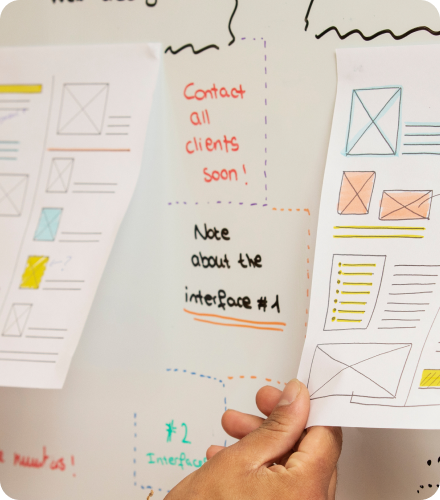 Contact
all
clients
soon!
Note
about the
interface #1
#2
Interface